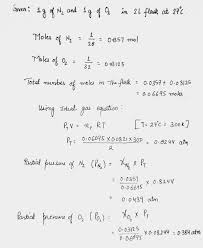 Given: 1g of N₂ and 1g of O₂ in 2L flask at 27°C
Moles of N₂ = 1/28 = 0.0357 mol
Moles of O₂ = 1/32 = 0.03125
Total number of moles in the flask = 0.0357 + 0.03125
= 0.06695 moles
Using Ideal gas equation
P₁V = n₁ RT [T = 27°C = 300K]
P_T = 0.06695 × 0.0821 × 300 / 2 = 0.824 atm
Partial pressure of N₂ (P_N₂) = X_N₂ × P_T
= 0.0357 / 0.06695 × 0.824
= 0.439 atm
Partial pressure of O₂ (P_O₂) = X_O₂ × P_T
= 0.03125 / 0.06695 × 0.824 = 0.384 atm